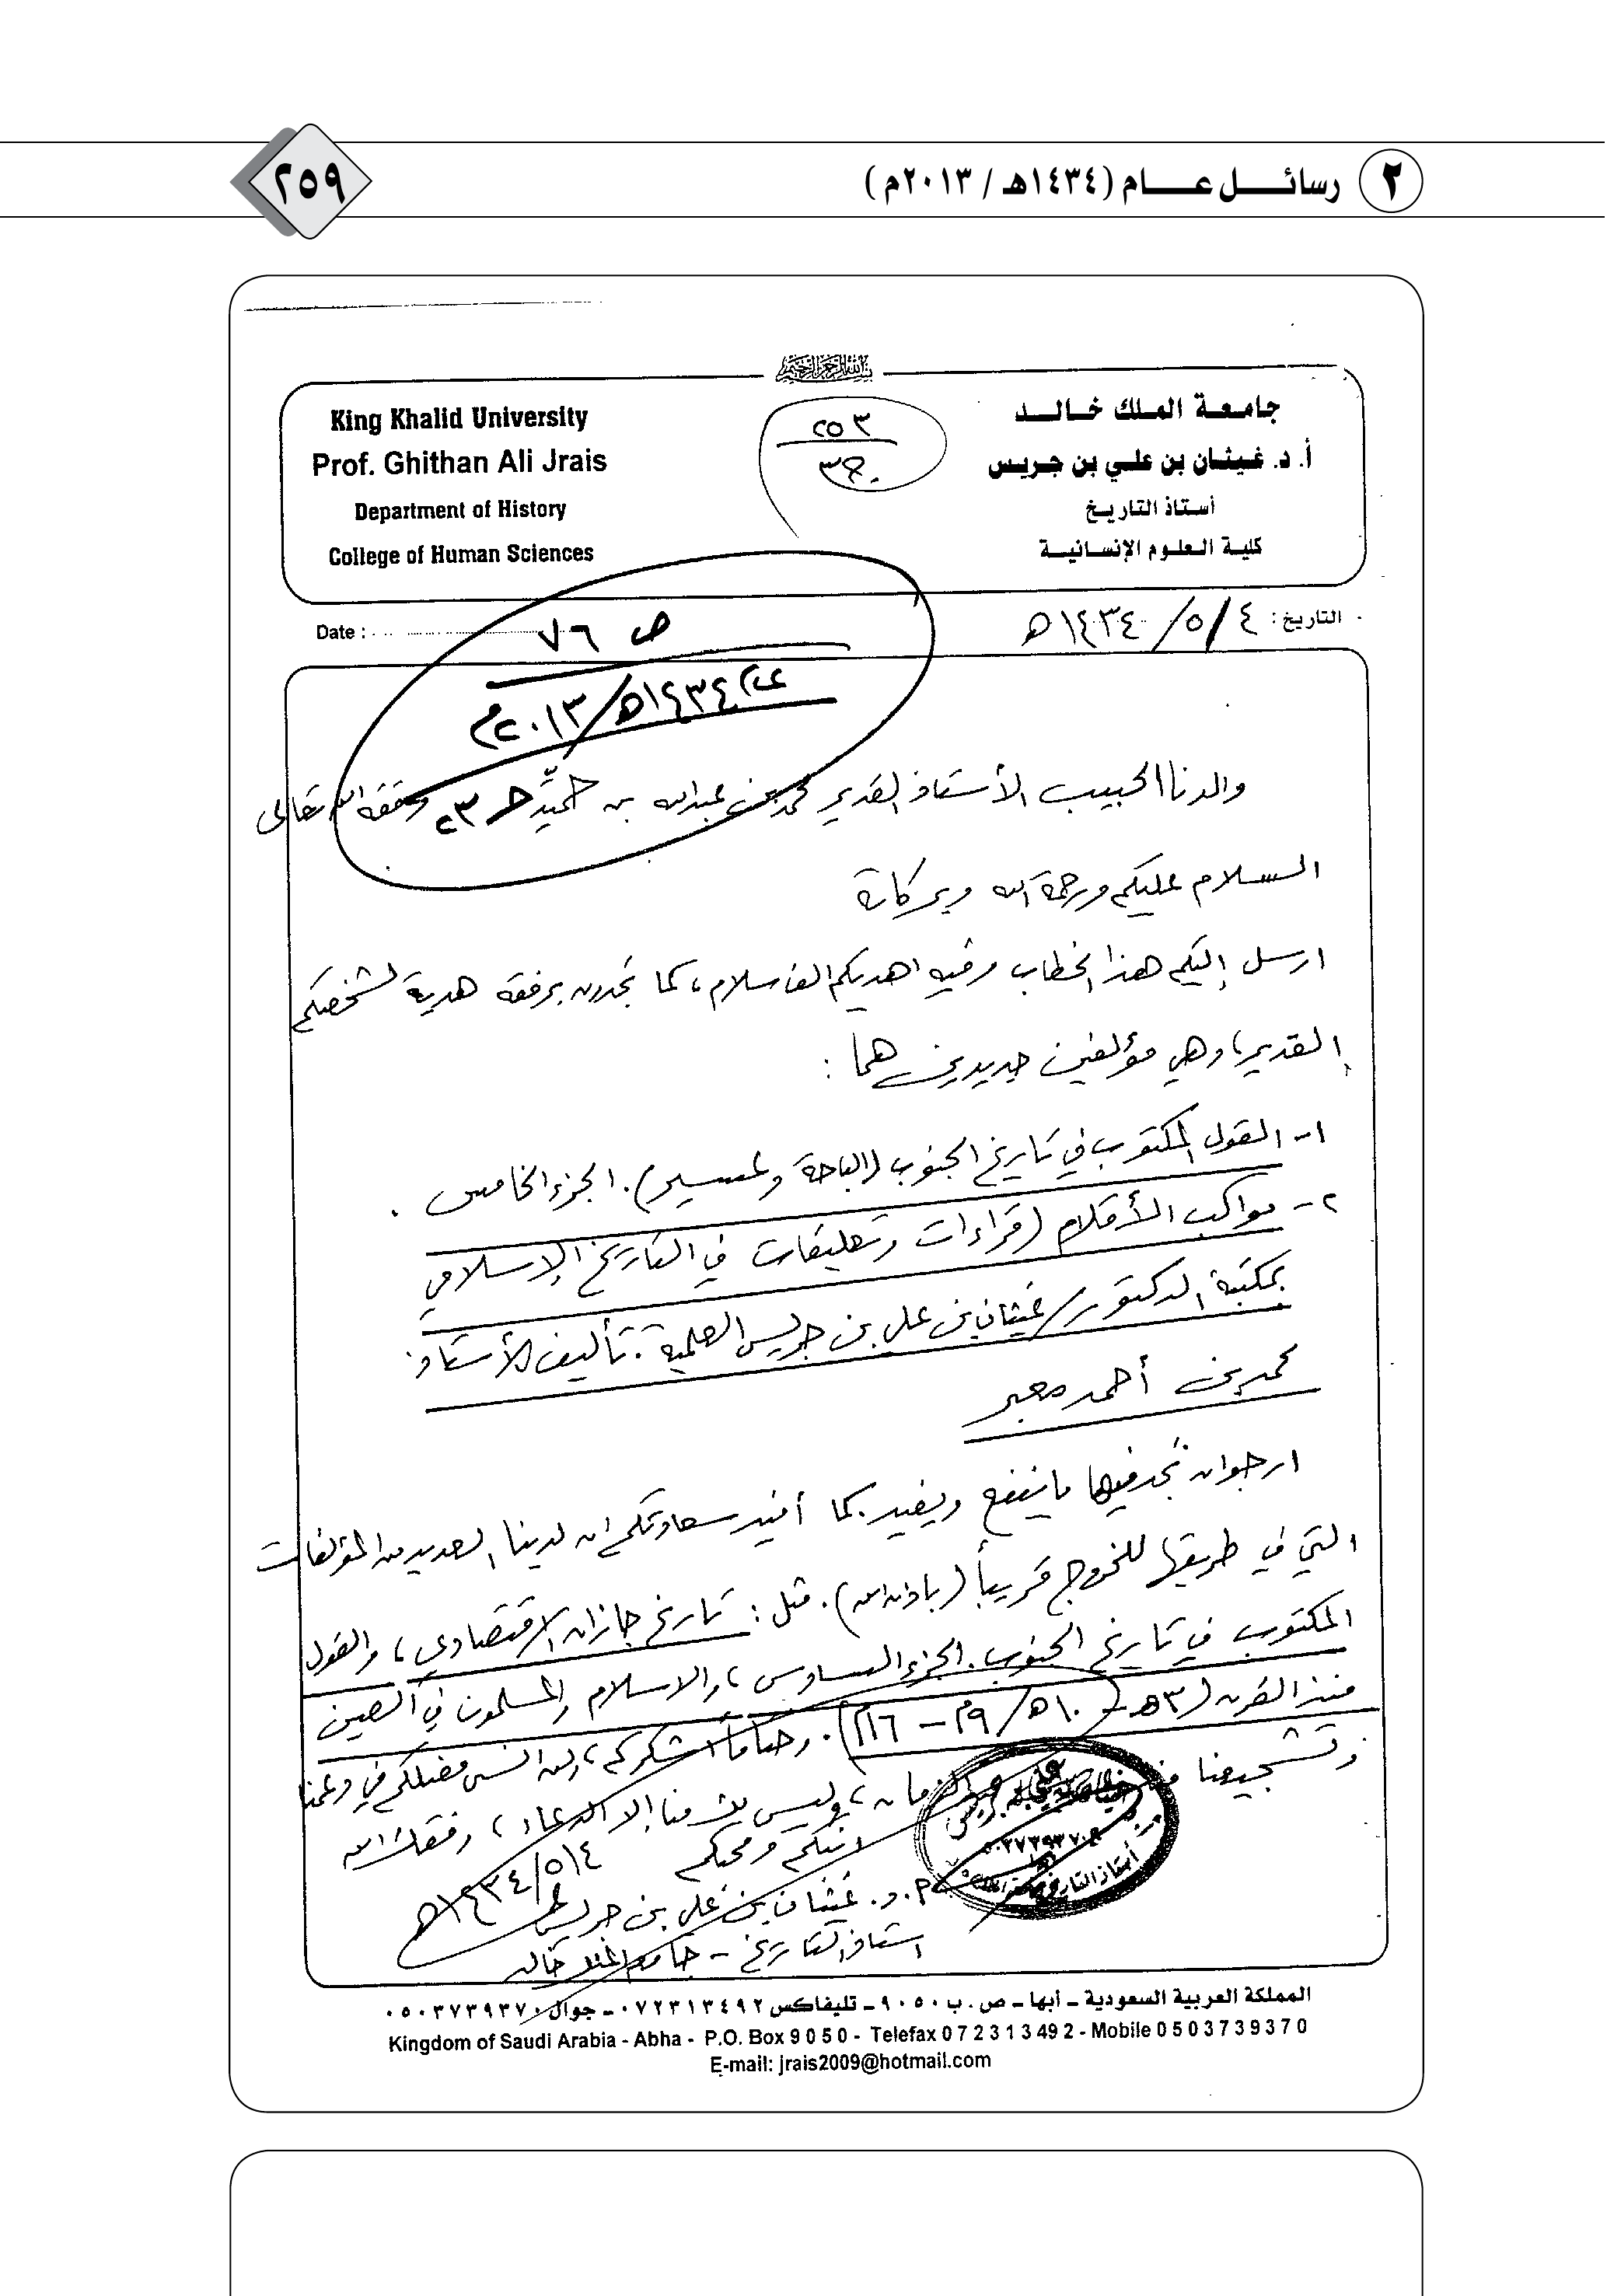 ٢ رسائل عام (١٤٣٤هـ / ٢٠١٣م)
٢٥٩
بسم الله الرحمن الرحيم
جامعة الملك خالد
أ. د. غيثان بن علي بن جريس
أستاذ التاريخ
كلية العلوم الإنسانية
King Khalid University
Prof. Ghithan Ali Jrais
Department of History
College of Human Sciences
٢٥٣
التاريخ: ٤ / ٥ / ١٤٣٤هـ
Date :
ص ٧٦
١٤٣٤هـ/٢٠١٣م
والدنا الحبيب الأستاذ القدير محمد بن عبدالله بن حميِّد حفظه الله تعالى
السلام عليكم ورحمة الله وبركاته
ارسل إليكم هذا الخطاب وفيه اهديكم الف سلام، كما تجدون برفقه هدية لشخصكم
القدير، وهي مؤلفين جديدين هما :
١- القول المكتوب في تاريخ الجنوب (الباحة وعسير). الجزء الخامس .
٢- مواكب الأقلام (قراءات وتعليقات في التاريخ الإسلامي
بمكتبة الدكتور/ غيثان بن علي بن جريس العلمية. تأليف الأستاذ
محمد بن أحمد معبر
ارجو ان تجد فيها ما ينفع ويفيد. كما أفيد سعادتكم ان لدينا العديد من المؤلفات
التي في طريقها للخروج قريباً (باذن الله). مثل : تاريخ جازان الاقتصادي، والقول
المكتوب في تاريخ الجنوب. الجزء السادس، والاسلام والمسلمون في الصين
منذ القرن (٣هـ - ١٠هـ/ ٩م - ١٦م). وختاماً اشكركم، ولن انسى فضلكم في دعمنا
وتشجيعنا الزمان، وليس منا إلا الدعاء، وفقك الله
ابنكم ومحبكم
أ. د. غيثان بن علي بن جريس
١٤٣٤/٥/٤هـ
استاذ التاريخ - جامعة الملك خالد
المملكة العربية السعودية ـ أبها ـ ص . ب ٩٠٥٠ ـ تليفاكس ٠٧٢٣١٣٤٩٢ ـ جوال ٠٥٠٣٧٣٩٣٧٠
Kingdom of Saudi Arabia - Abha - P.O. Box 9 0 5 0 - Telefax 0 7 2 3 1 3 49 2 - Mobile 0 5 0 3 7 3 9 3 7 0
E-mail: jrais2009@hotmail.com